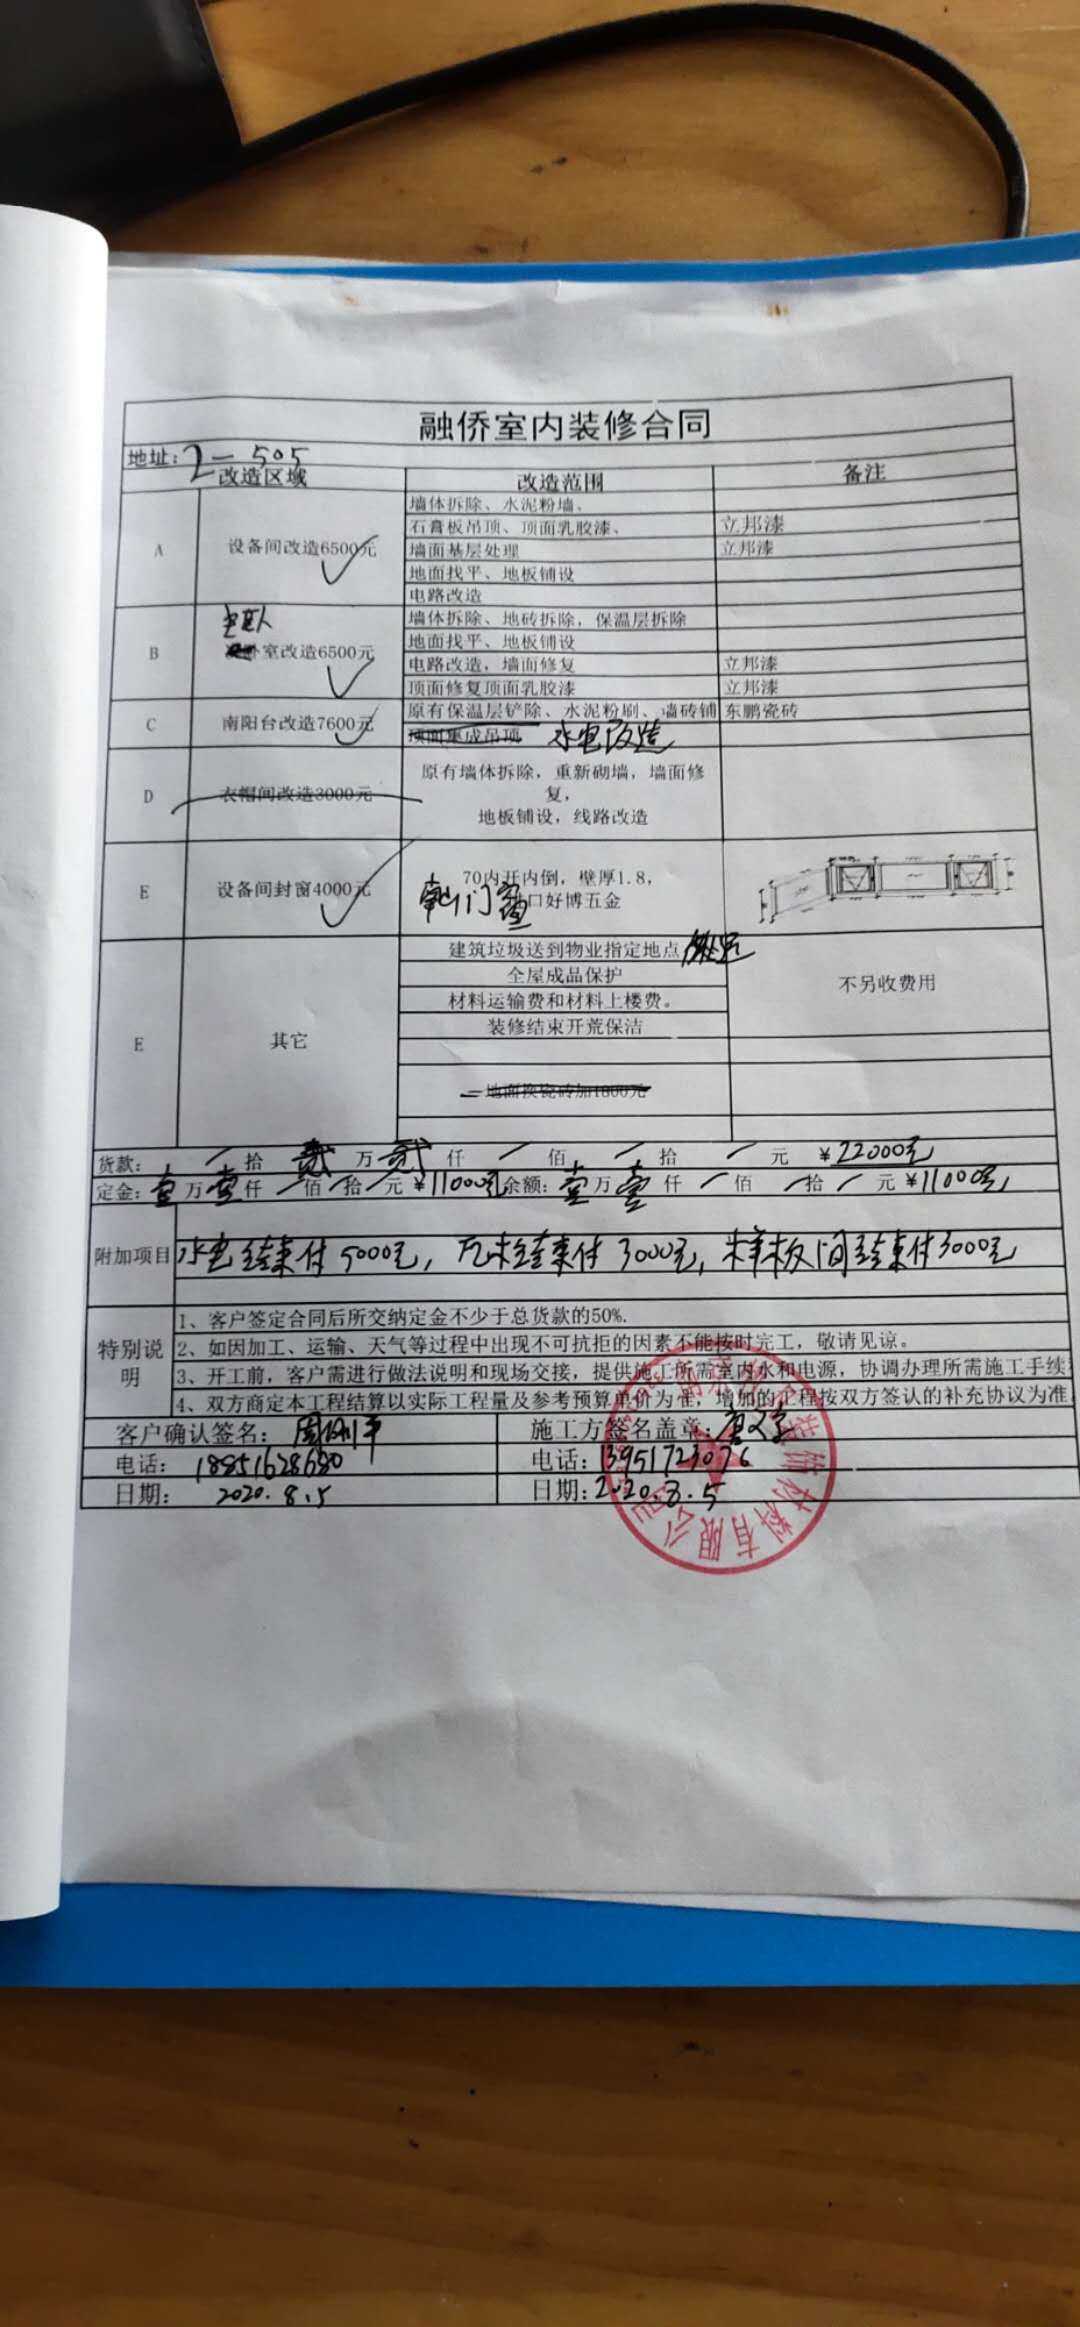 融侨室内装修合同
地址：2-505
改造区域 改造范围 备注
A 设备间改造6500元 墙体拆除、水泥粉墙、
石膏板吊顶、顶面乳胶漆、 立邦漆
墙面基层处理 立邦漆
地面找平、地板铺设
电路改造
B 室改造6500元 墙体拆除、地砖拆除，保温层拆除
地面找平、地板铺设
电路改造，墙面修复 立邦漆
顶面修复顶面乳胶漆 立邦漆
C 南阳台改造7600元 原有保温层铲除、水泥粉刷、墙砖铺 东鹏瓷砖
顶面集成吊顶 水电改造
D 衣帽间改造3000元 原有墙体拆除，重新砌墙，墙面修
复，
地板铺设，线路改造
E 设备间封窗4000元 70内开内倒，壁厚1.8，
门窗 口好博五金
E 其它 建筑垃圾送到物业指定地点
全屋成品保护
材料运输费和材料上楼费。
装修结束开荒保洁
不另收费用
地面换瓷砖加1800元
货款： / 拾 贰 万 贰 仟 / 佰 / 拾 / 元 ¥22000元
定金：壹万壹仟 / 佰 / 拾 / 元 ¥11000元 余额：壹万壹仟 / 佰 / 拾 / 元 ¥11000元
附加项目 水电结束付5000元，瓦木结束付3000元，样板间结束付3000元
特别说明
1、客户签定合同后所交纳定金不少于总货款的50%.
2、如因加工、运输、天气等过程中出现不可抗拒的因素不能按时完工，敬请见谅。
3、开工前，客户需进行做法说明和现场交接，提供施工所需室内水和电源，协调办理所需施工手续
4、双方商定本工程结算以实际工程量及参考预算单价为准，增加的工程按双方签认的补充协议为准
客户确认签名： 施工方签名盖章：
电话：18851628680 电话：13951723076
日期：2020.8.5 日期：2020.8.5
装饰材料有限公司